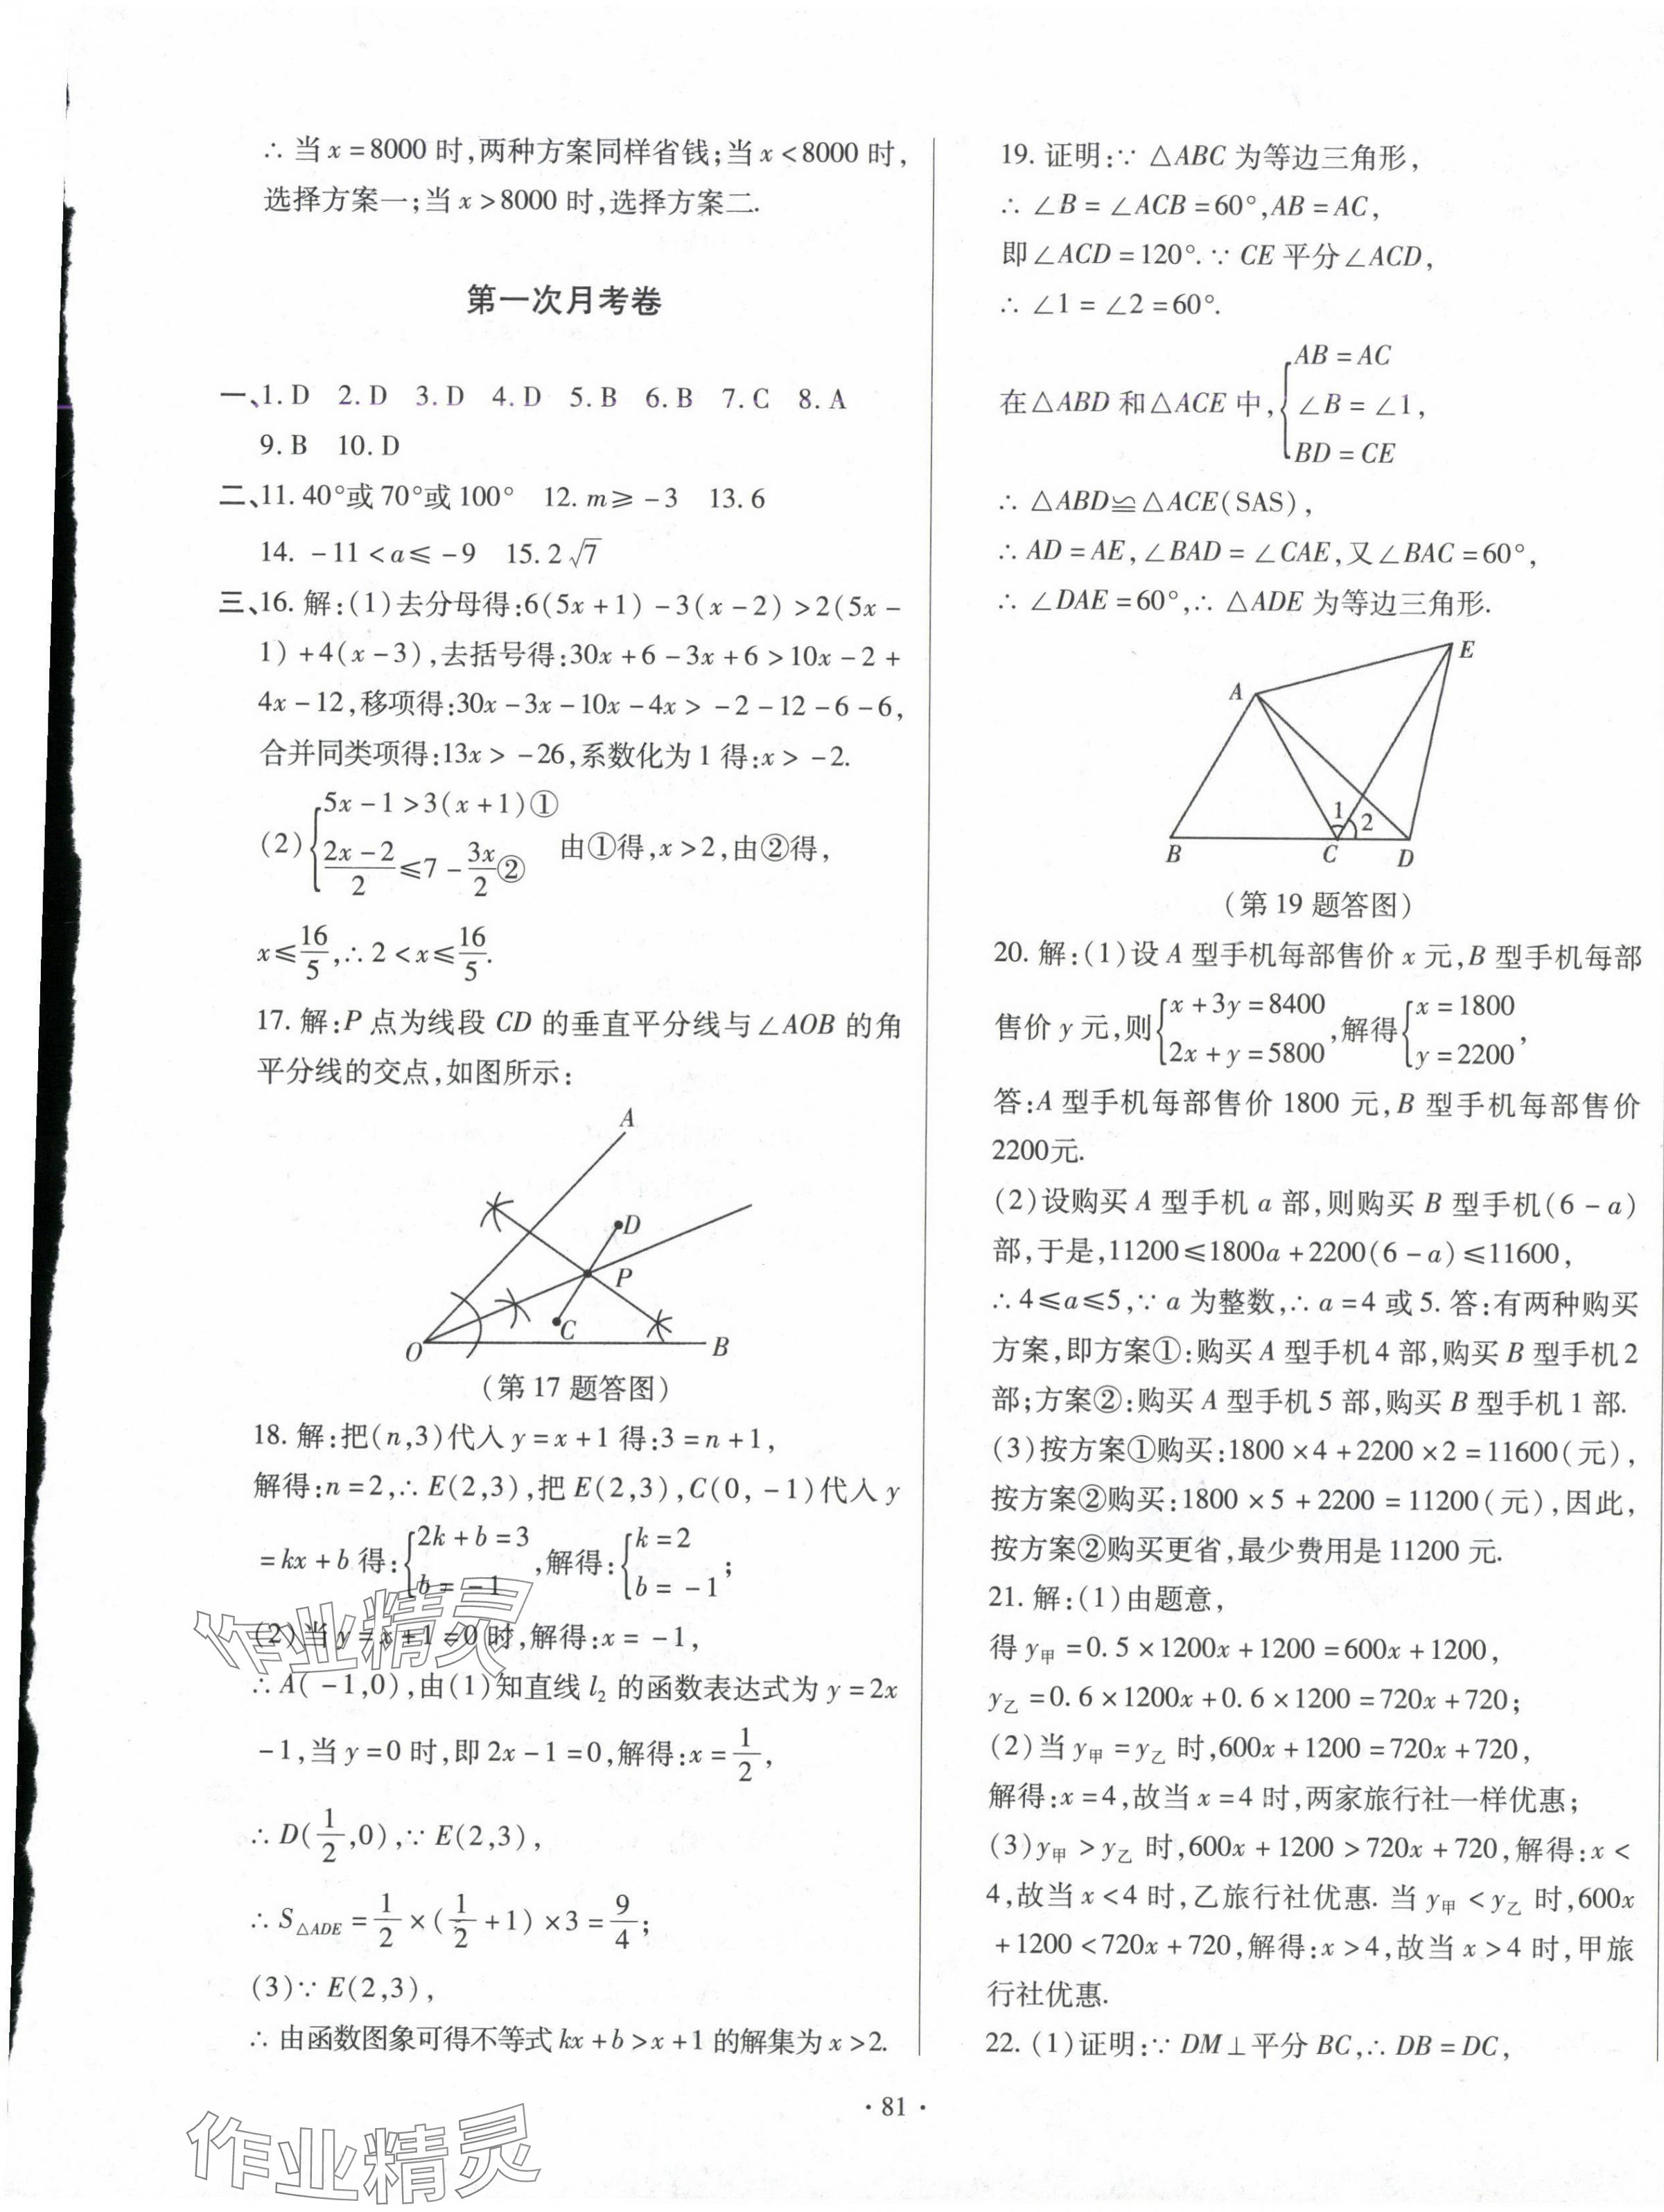 ∴ 当 x = 8000 时,两种方案同样省钱;当 x < 8000 时,
选择方案一;当 x > 8000 时,选择方案二.
第一次月考卷
一、1. D 2. D 3. D 4. D 5. B 6. B 7. C 8. A
9. B 10. D
二、11. 40°或 70°或 100° 12. m ≥ -3 13. 6
14. -11 < a ≤ -9 15. 2√7
三、16. 解:(1)去分母得:6(5x+1) -3(x-2) >2(5x-
1) +4(x-3),去括号得:30x+6-3x+6>10x-2+
4x-12,移项得:30x-3x-10x-4x> -2-12-6-6,
合并同类项得:13x> -26,系数化为 1 得:x> -2.
(2) { 5x-1>3(x+1)① (2x-2)/2 ≤7- 3x/2 ② 由①得,x>2,由②得,
x≤ 16/5 ,∴ 2<x≤ 16/5 .
17. 解:P 点为线段 CD 的垂直平分线与∠AOB 的角
平分线的交点,如图所示:
A
D
P
C
O
B
(第 17 题答图)
18. 解:把(n,3)代入 y=x+1 得:3=n+1,
解得:n=2,∴ E(2,3),把 E(2,3),C(0, -1)代入 y
=kx+b 得: { 2k+b=3 b= -1 ,解得: { k=2 b= -1 ;
(2)当 y=x+1=0 时,解得:x= -1,
∴ A( -1,0),由(1)知直线 l₂ 的函数表达式为 y=2x
-1,当 y=0 时,即 2x-1=0,解得:x= 1/2 ,
∴ D( 1/2 ,0),∵ E(2,3),
∴ S△ADE = 1/2 ×( 1/2 +1) ×3= 9/4 ;
(3)∵ E(2,3),
∴ 由函数图象可得不等式 kx+b>x+1 的解集为 x>2.
19. 证明:∵ △ABC 为等边三角形,
∴ ∠B = ∠ACB =60°,AB =AC,
即∠ACD =120°. ∵ CE 平分∠ACD,
∴ ∠1 = ∠2 =60°.
在△ABD 和△ACE 中, { AB =AC ∠B = ∠1, BD =CE
∴ △ABD≌△ACE(SAS),
∴ AD =AE,∠BAD = ∠CAE,又∠BAC =60°,
∴ ∠DAE =60°,∴ △ADE 为等边三角形.
E
A
1
2
B
C
D
(第 19 题答图)
20. 解:(1)设 A 型手机每部售价 x 元,B 型手机每部
售价 y 元,则 { x+3y=8400 2x+y=5800 ,解得 { x=1800 y=2200 ,
答:A 型手机每部售价 1800 元,B 型手机每部售价
2200元.
(2)设购买 A 型手机 a 部,则购买 B 型手机(6-a)
部,于是,11200≤1800a+2200(6-a)≤11600,
∴ 4≤a≤5,∵ a 为整数,∴ a=4 或 5. 答:有两种购买
方案,即方案①:购买 A 型手机 4 部,购买 B 型手机 2
部;方案②:购买 A 型手机 5 部,购买 B 型手机 1 部.
(3)按方案①购买:1800×4+2200×2=11600(元),
按方案②购买:1800×5+2200=11200(元),因此,
按方案②购买更省,最少费用是 11200 元.
21. 解:(1)由题意,
得 y甲 =0.5×1200x+1200=600x+1200,
y乙 =0.6×1200x+0.6×1200=720x+720;
(2)当 y甲 =y乙 时,600x+1200=720x+720,
解得:x=4,故当 x=4 时,两家旅行社一样优惠;
(3)y甲 >y乙 时,600x+1200>720x+720,解得:x<
4,故当 x<4 时,乙旅行社优惠. 当 y甲 <y乙 时,600x
+1200<720x+720,解得:x>4,故当 x>4 时,甲旅
行社优惠.
22. (1)证明:∵ DM⊥平分 BC,∴ DB=DC,
· 81 ·
作业精灵
作业精灵